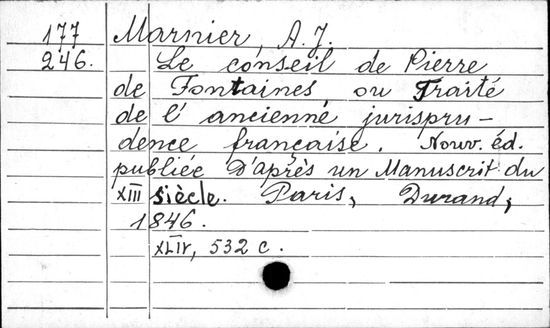 177 Marnier, A. J.
246. Le conseil de Pierre
de Fontaines ou Traité
de l'ancienne jurispru-
dence française. Nouv. éd.
publiée d'après un Manuscrit du
XIII siècle. Paris, Durand,
1846.
XLIV, 532 c.